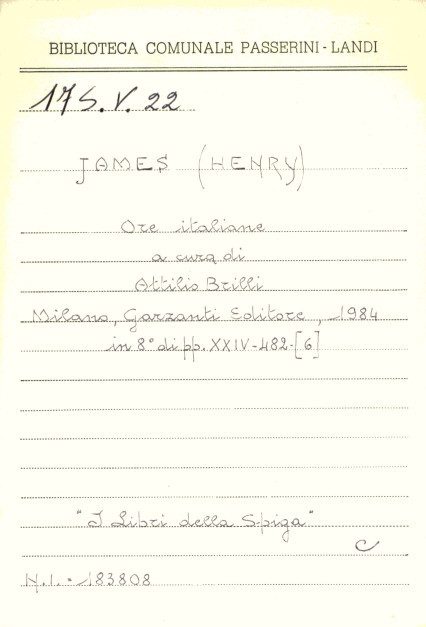 BIBLIOTECA COMUNALE PASSERINI-LANDI
17S.V.22
JAMES (HENRY)
Ore italiane
a cura di
Attilio Brilli
Milano, Garzanti Editore, 1984
in 8° di pp. XXIV-482-[6]
"I Libri della Spiga"
C
N.I. - 183808